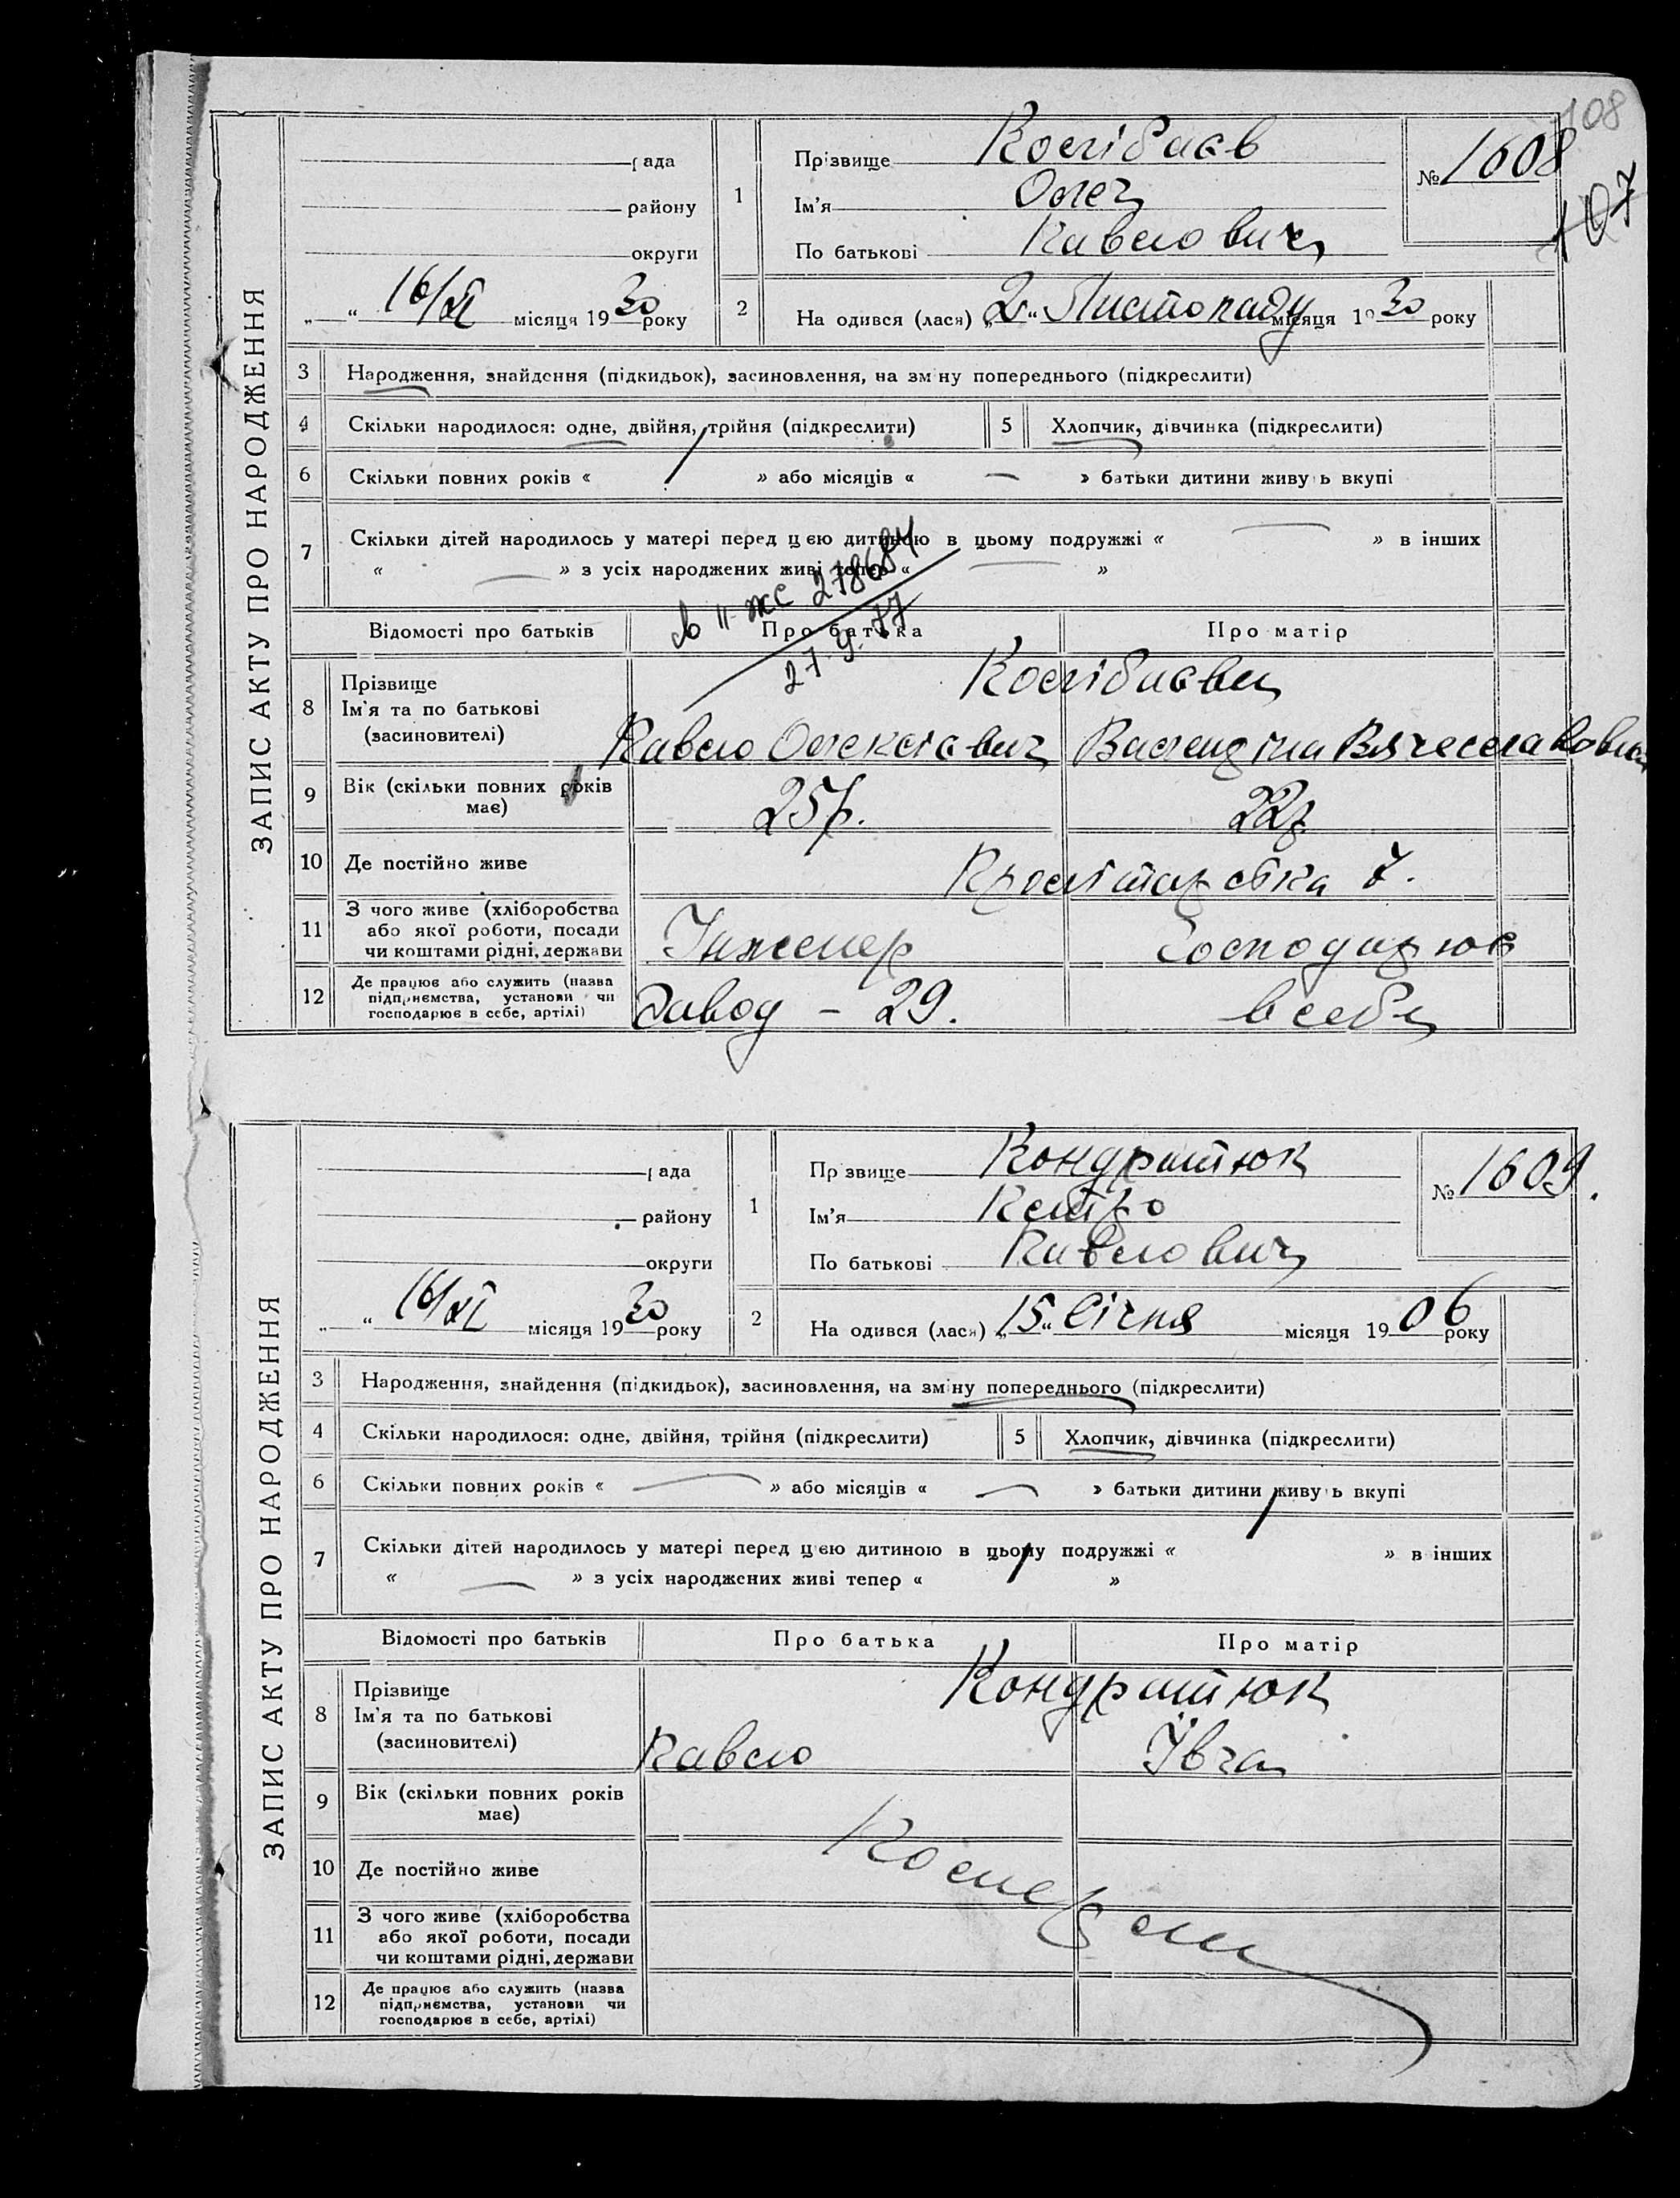 108
107
ЗАПИС АКТУ ПРО НАРОДЖЕННЯ
рада
району
округи
„ “ 16/XI місяця 1930 року
1
Прізвище
Ім'я Олег
По батькові Павлович
№ 1608
2 На одився (лася) „2“ Листопаду місяця 1930 року
3 Народження, знайдення (підкидьок), засиновлення, на зм ну попереднього (підкреслити)
4 Скільки народилося: одне, двійня, трійня (підкреслити) 5 Хлопчик, дівчинка (підкреслити)
6 Скільки повних років « / » або місяців « — » батьки дитини живу ь вкупі
7 Скільки дітей народилось у матері перед цею дитиною в цьому подружжі « — » в інших
« — » з усіх народжених живі тепер « — »
II-ЖС 278684
27.9.77
Відомості про батьків Про батька Про матір
8 Прізвище
Ім'я та по батькові
(засиновителі)
Павло Олексієвич Валендіна Вячеславовна
9 Вік (скільки повних років має) 25р. 22р
10 Де постійно живе Пролітарська 7.
11 З чого живе (хліборобства або якої роботи, посади чи коштами рідні, держави Інженер Господарює
12 Де працює або служить (назва підприємства, установи чи господарює в себе, артілі) Завод – 29. в себе
ЗАПИС АКТУ ПРО НАРОДЖЕННЯ
рада
району
округи
„ “ 16/XI місяця 1930 року
1
Пр звище Кондратюк
Ім'я Петро
По батькові Павлович
№ 1609.
2 На одився (лася) „15“ Січня місяця 1906 року
3 Народження, знайдення (підкидьок), засиновлення, на зміну попереднього (підкреслити)
4 Скільки народилося: одне, двійня, трійня (підкреслити) 5 Хлопчик, дівчинка (підкреслити)
6 Скільки повних років « — » або місяців « — » батьки дитини живу ь вкупі
7 Скільки дітей народилось у матері перед цею дитиною в цьому подружжі « » в інших
« — » з усіх народжених живі тепер « »
Відомості про батьків Про батька Про матір
8 Прізвище
Ім'я та по батькові
(засиновителі)
Кондратюк
Павло
9 Вік (скільки повних років має)
10 Де постійно живе
11 З чого живе (хліборобства або якої роботи, посади чи коштами рідні, держави
12 Де працює або служить (назва підприємства, установи чи господарює в себе, артілі)